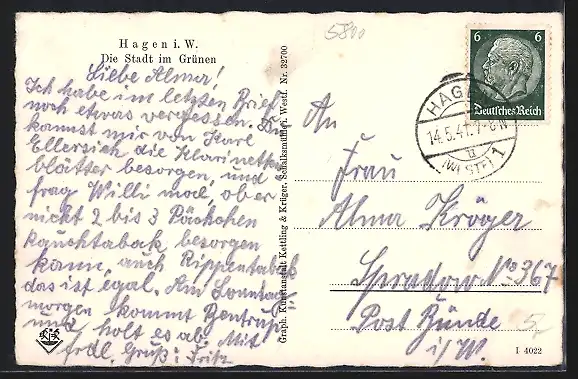 5800
Hagen i. W.
Die Stadt im Grünen
Liebe Alma!
Ich habe im letzten Brief
noch etwas vergessen. Du
kannst mir von Karl
Ellersiek die Klarinetten
blätter besorgen, und
frag Willi mal, ob er
nicht 2 bis 3 Päckchen
Rauchtabak besorgen
kann, auch Rippentabak
das ist egal. Am Sonntag
morgen kommt
und holt es ab. Mit
frdl. Gruß: Fritz
Graph. Kunstanstalt Kettling & Krüger, Schalksmühle i. Westf. Nr. 32700
6 6
Deutsches Reich
HAGEN
14.5.41.7-8N
(WESTF) 1
An
Frau
Alma Kröger
Spradow No 367
Post Bünde
i/W.
I 4022